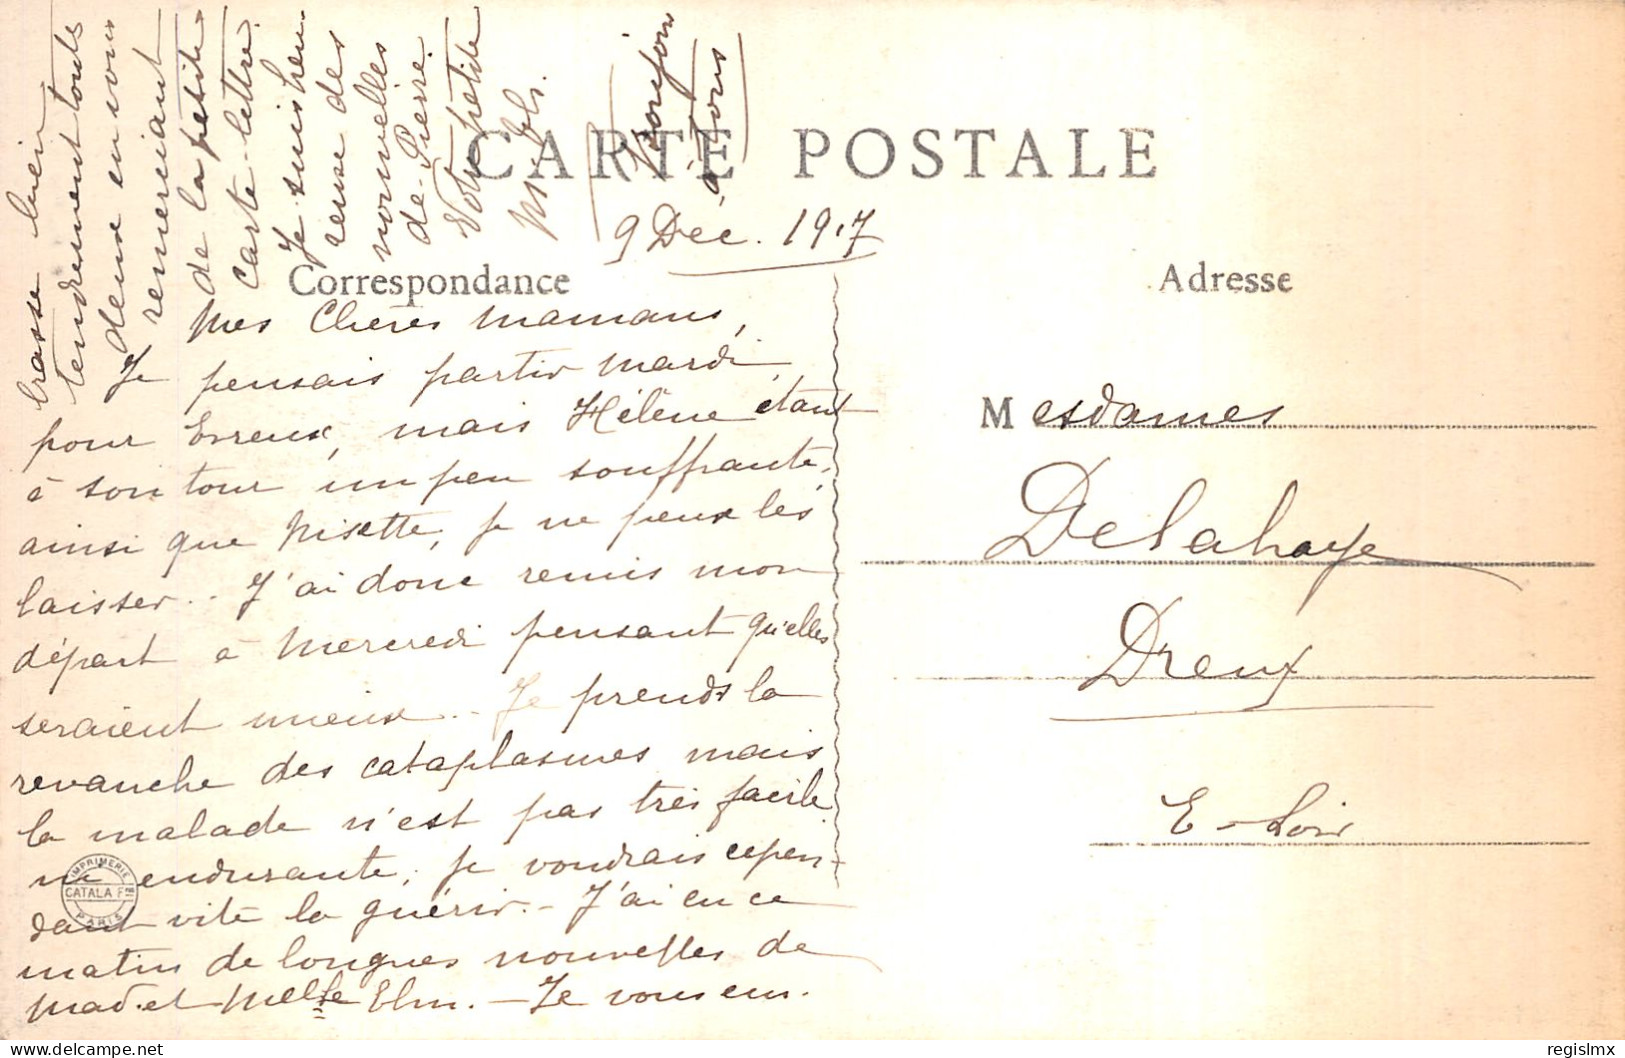 CARTE POSTALE
9 Déc. 1917
Correspondance
Mes Chères Mamans,
Je pensais partir Mardi
pour Evreux, mais Hélène étant
à son tour un peu souffrante,
ainsi que Nisette, je ne peux les
laisser.. J'ai donc remis mon
départ à Mercredi pensant qu'elles
seraient mieux.. Je prends la
revanche des cataplasmes mais
la malade n'est pas très facile
ni endurante, je voudrais cepen-
dant vite la guérir.- J'ai eu ce
matin de longues nouvelles de
Mad. et Melle Elm. - Je vous em-
brasse bien
tendrement toute
deux en vous
remerciant
de la petite
carte-lettre.
Je suis heu
reuse des
nouvelles
de Pierre.
Votre petite
Bonjour
à tous
Adresse
Mesdames
Delahaye
Dreux
E-Loir
IMPRIMERIE
CATALA Fres
PARIS
regislmx
delcampe.net